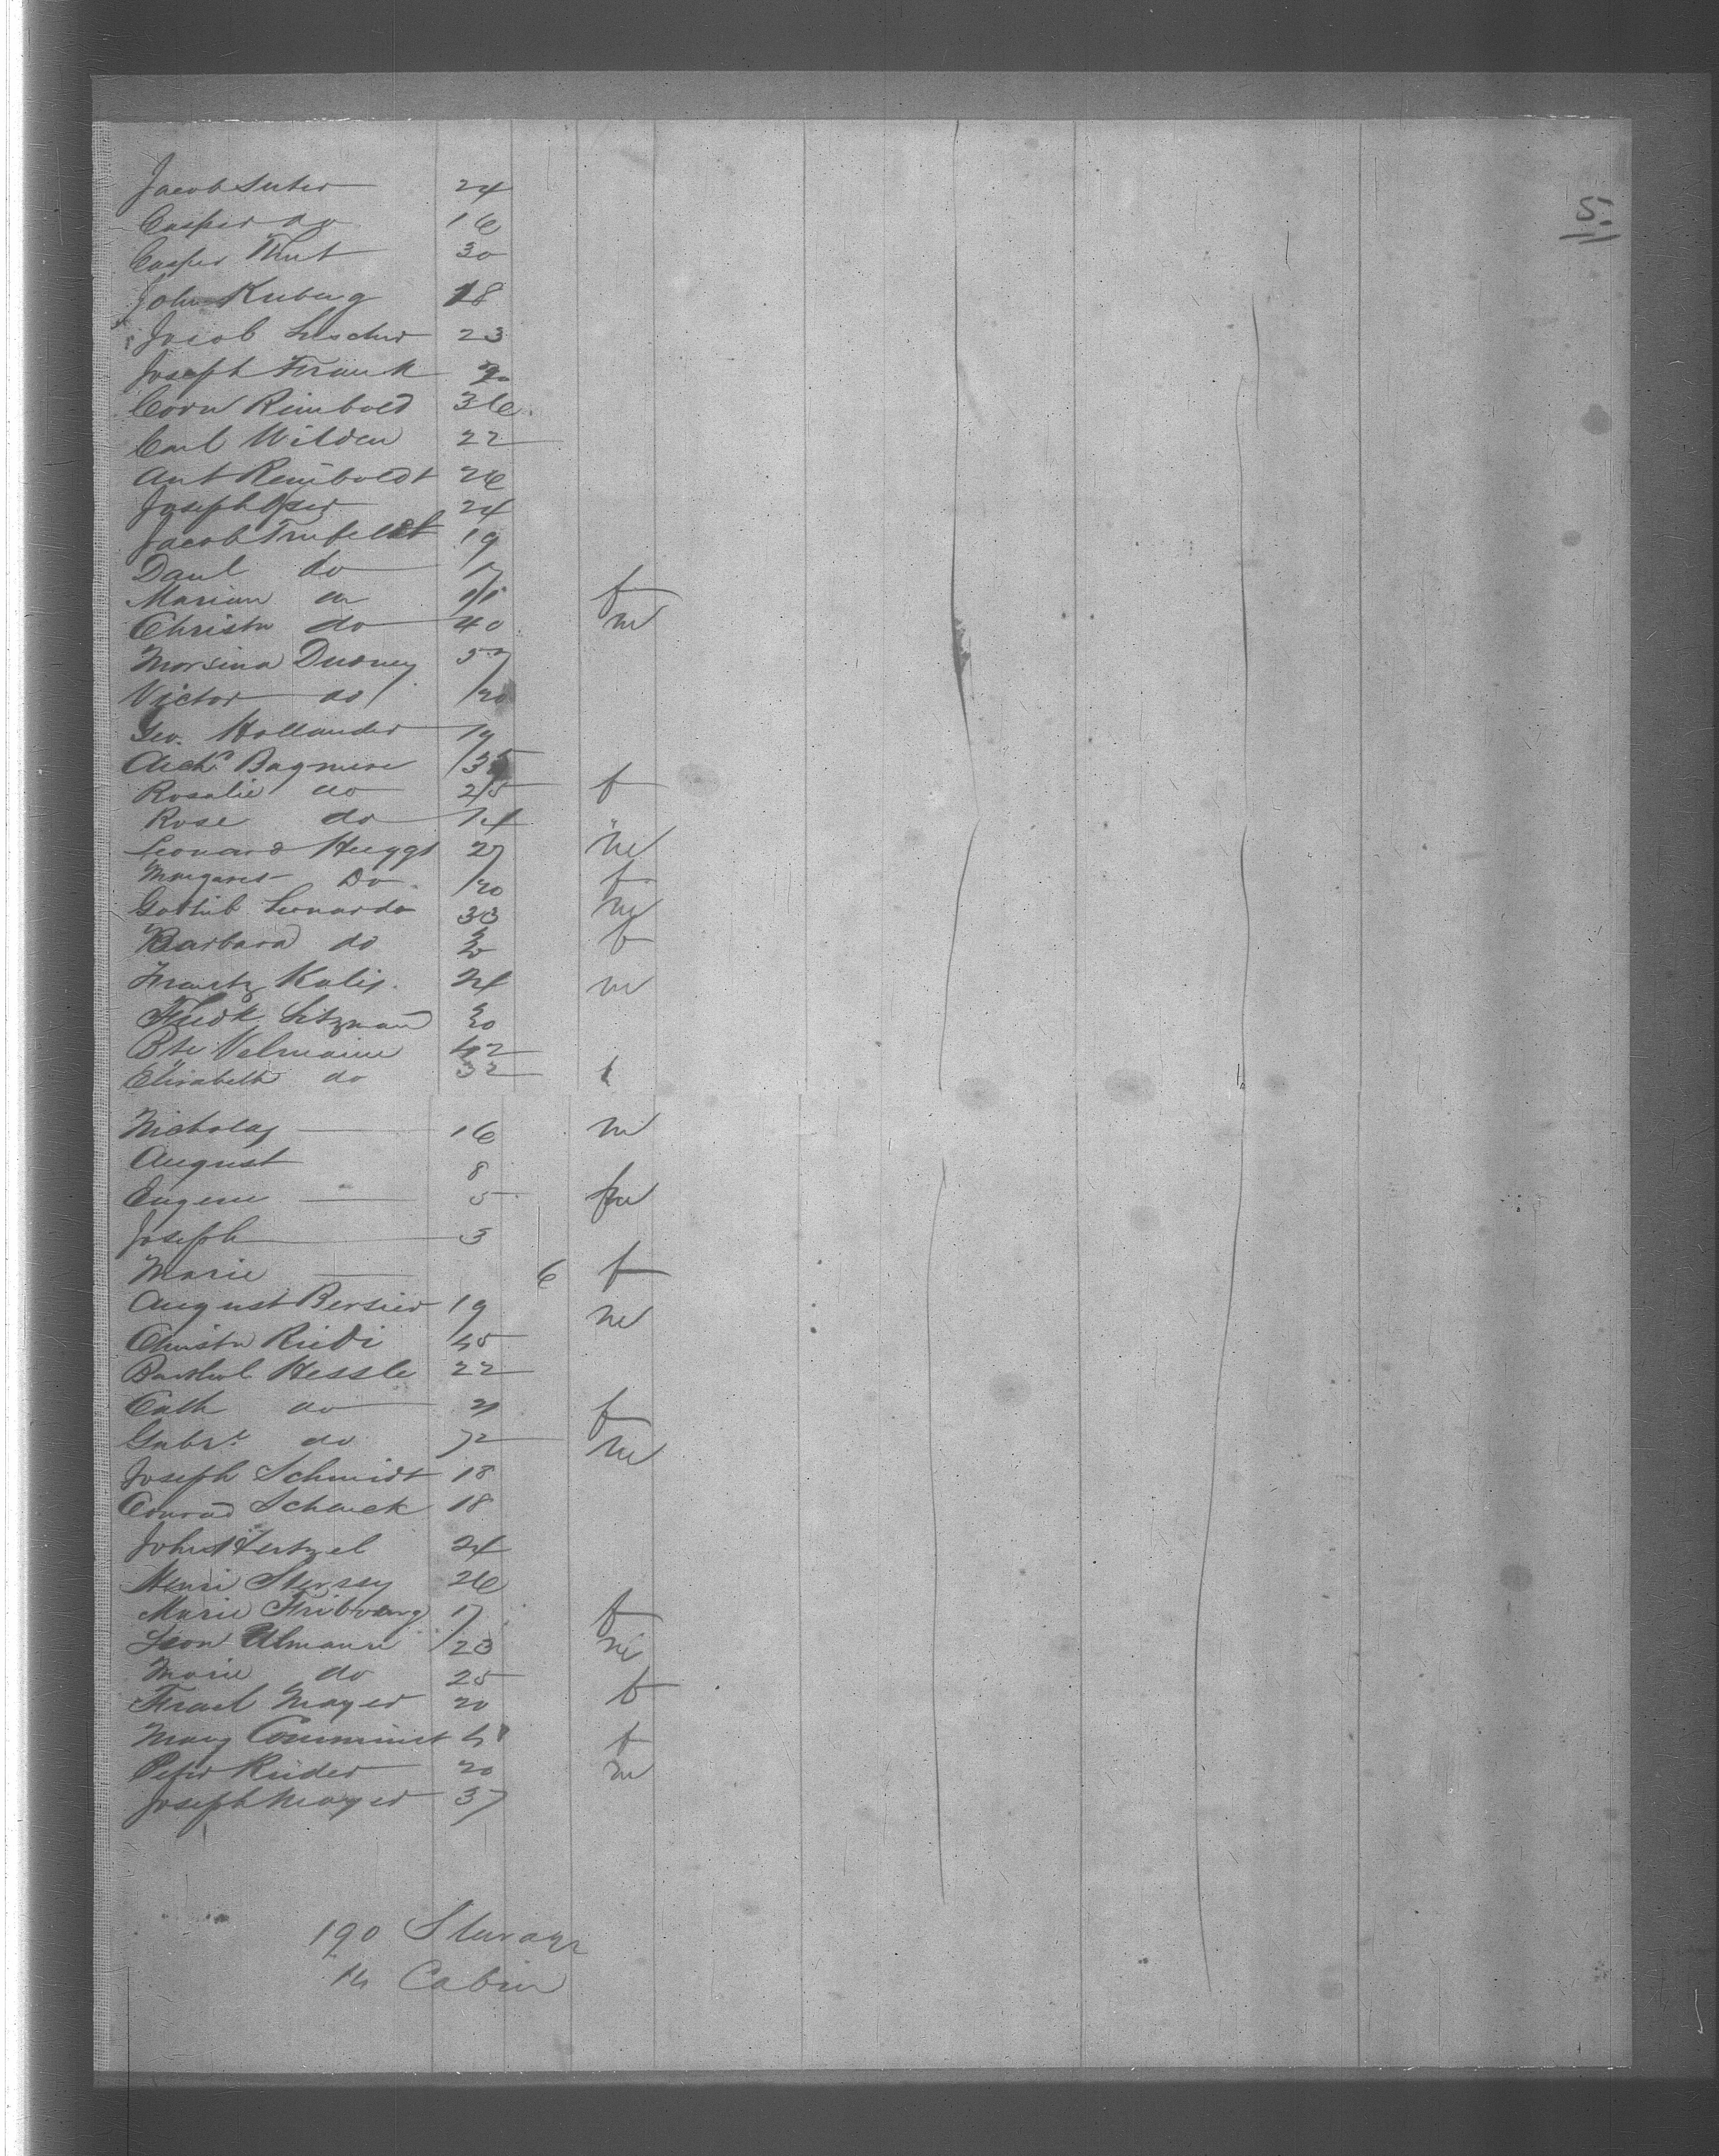 5.
Jacob Suter 24
Casper do 16
Casper Thut 30
John Kuberg 18
Jacob Luscher 23
Joseph Frank
Corn Rimbold 36
Carl Wilden 22
Ant Reimboldt 26
Joseph Oser 24
Jacob 19
Danl do 17
Marian do f
Christn do 40 m
Morsina Dudney 57
Victor do 20
Geo. Hollander 19
Arch. Bagnure 35
Rosalie do 25 f
Rose do 14
Leonard Huggs 27 m
Margaret Do 20 f
Gottlib Leonardo 33 m
Barbara do f
Frantz Kalis 24 m
Fredk Litzmann 30
Bte Velmaine 42
Elisabeth do 32 f
Nicholas 16 m
August 8
Eugene 5 m
Joseph 3
Marie 6 f
August Bersier 19 m
Christn Riedi 45
Barthol Hessle 22
Cath do 21 f
Gabrl do 72 m
Joseph Schmidt 18
Conrad Schenck 18
John Hertzel 24
Henri Stersey 26
Marie Fribourg 17 f
Leon Ulmann 23 m
Marie do 25 f
Mayer 20
Mary f
Peter Rieder 20 m
Joseph Mayer 37
190 Steerage
14 Cabin